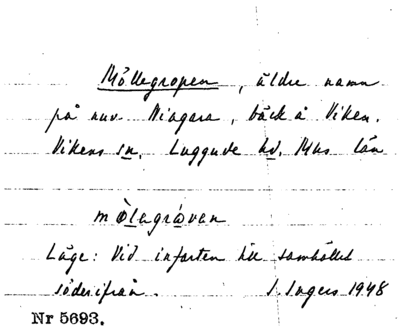 Möllegropen, äldre namn
på nuv. Niagara, bäck i Viken.
Vikens sn. Luggude hd. Mhs län
mòlagròvan
Läge: Vid infarten till samhället
söderifrån. I. Ingers 1948
Nr 5693.